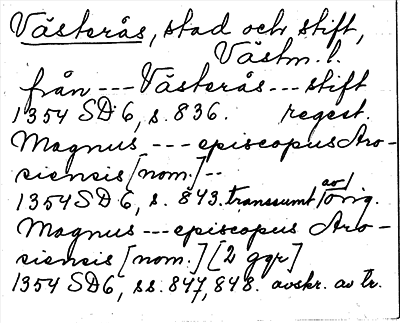 Västerås, stad och stift,
Västm. l.
från --- Västerås --- stift
1354 SD 6, s. 836. regest.
Magnus --- episcopus Aro-
siensis [nom.] --
1354 SD 6, s. 843. transsumt av / orig.
Magnus --- episcopus Aro-
siensis [nom.] [2 ggr]
1354 SD 6, ss. 847, 848. avskr. av tr.